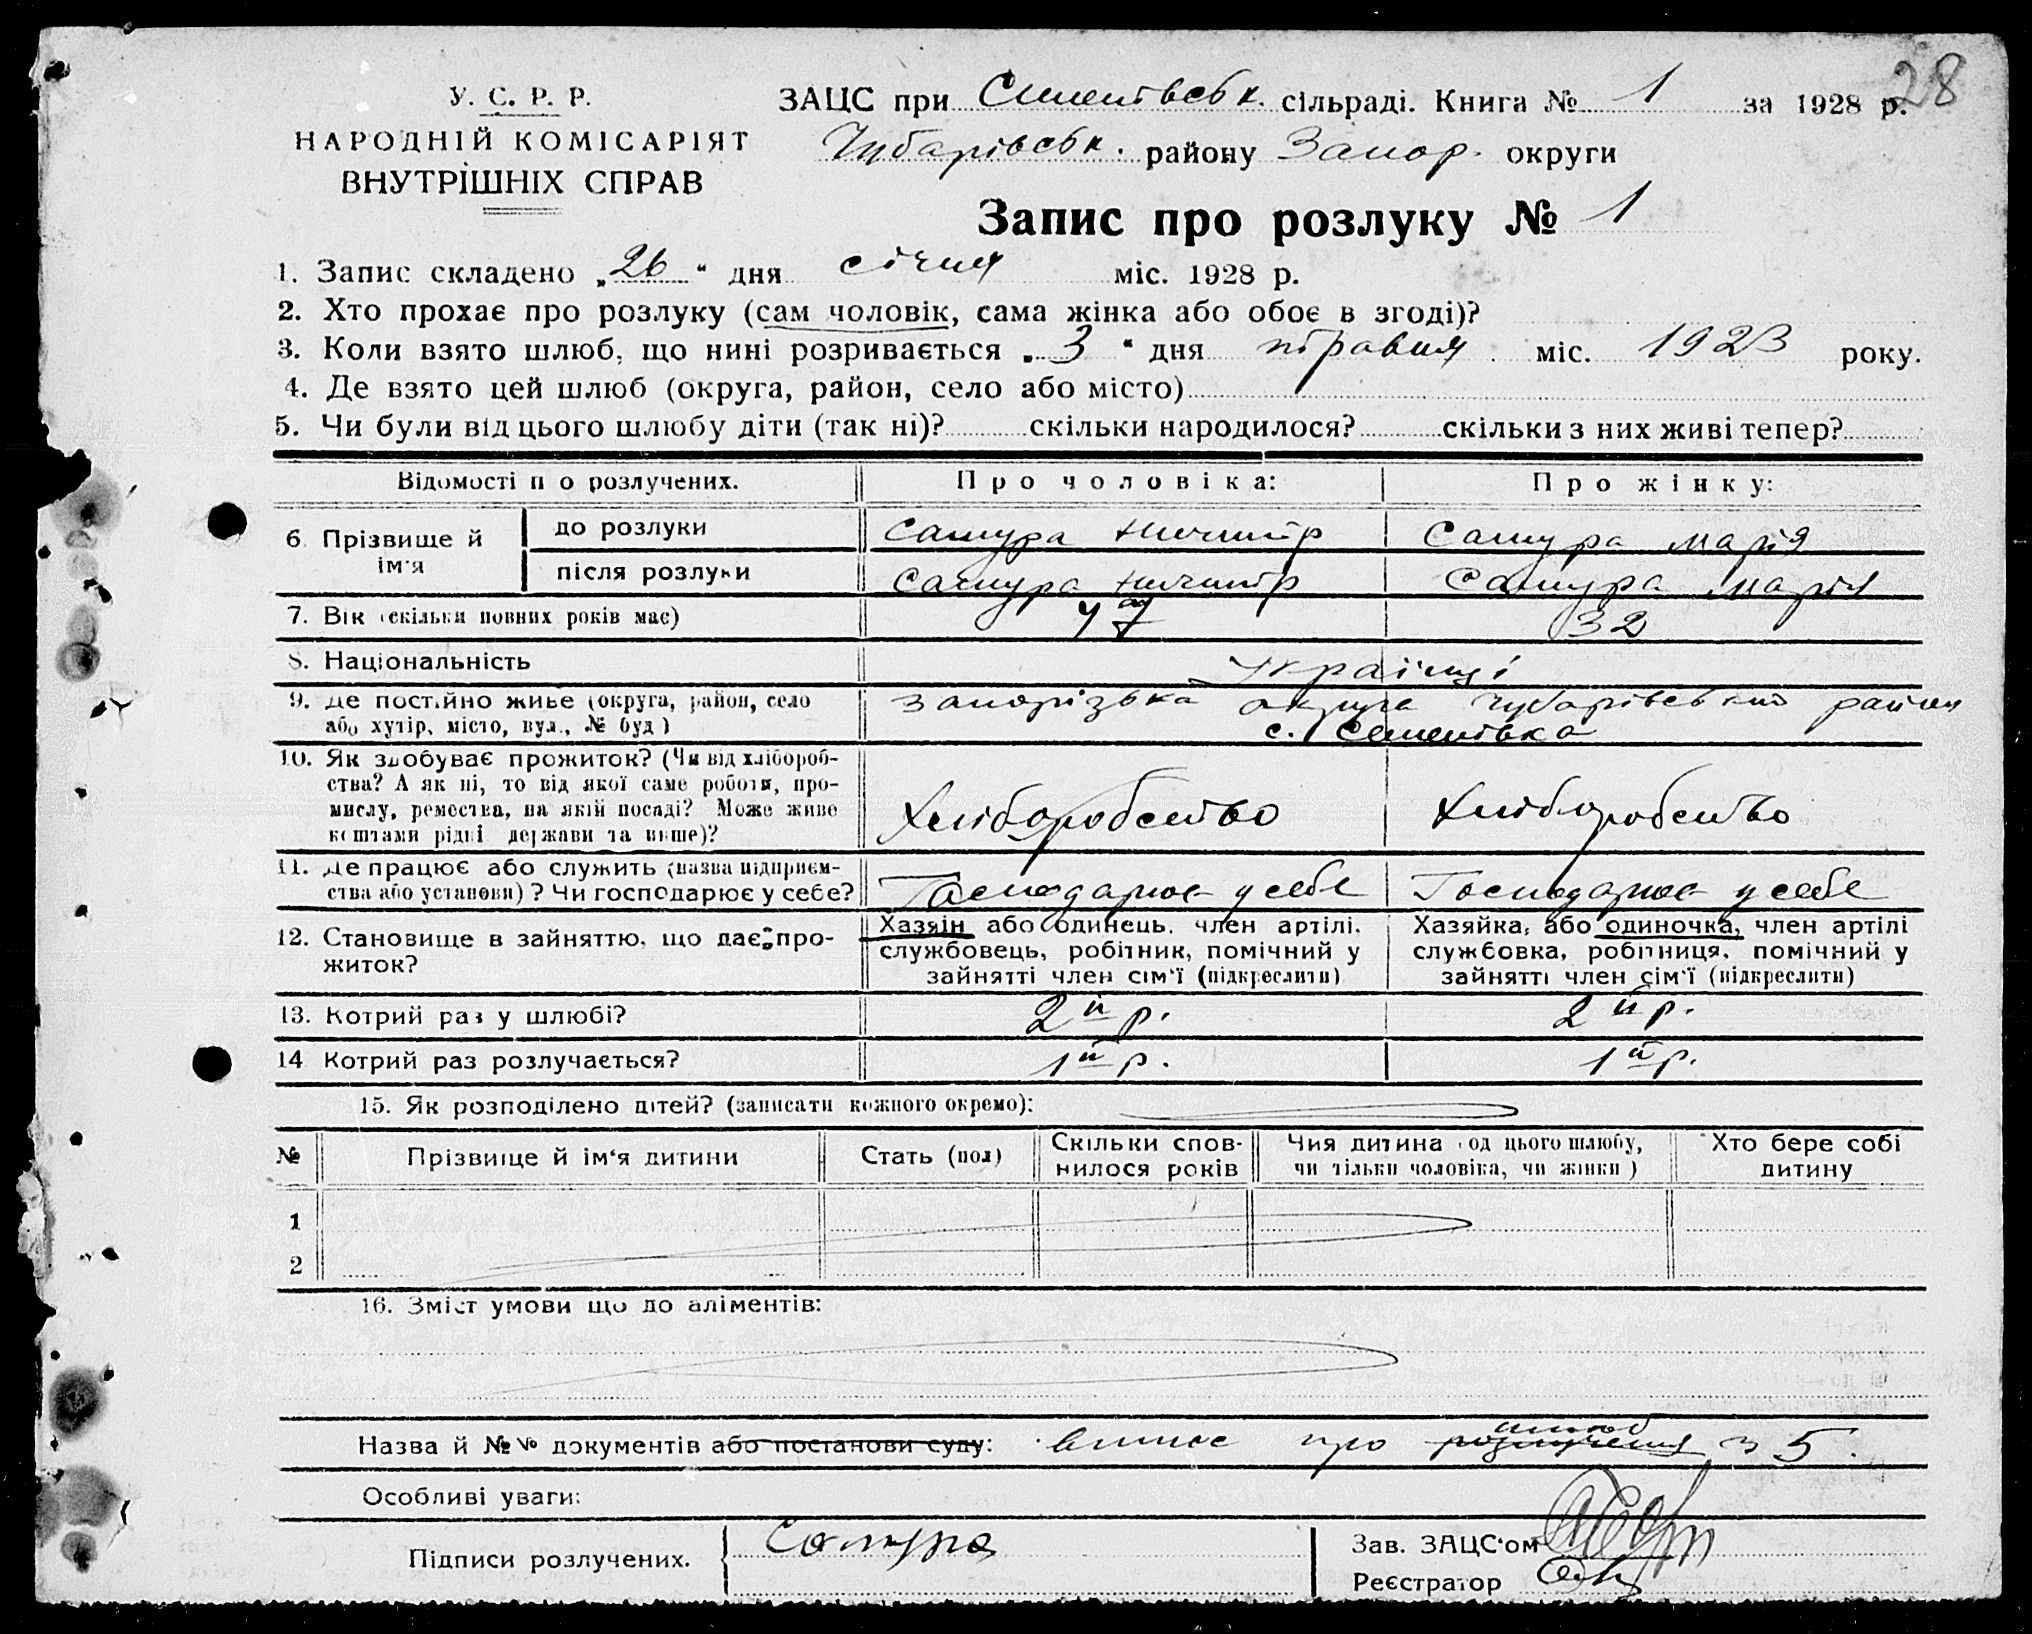 28
У. С. Р. Р.
НАРОДНІЙ КОМІСАРІЯТ
ВНУТРІШНІХ СПРАВ
ЗАЦС при Семенівськ. сільраді. Книга № 1 за 1928 р.
Чубарівськ. району Запор. округи
Запис про розлуку № 1
1. Запис складено „26“ дня січня міс. 1928 р.
2. Хто прохає про розлуку (сам чоловік, сама жінка або обоє в згоді)?
3. Коли взято шлюб, що нині розривається „3“ дня травня міс. 1923 року.
4. Де взято цей шлюб (округа, район, село або місто)
5. Чи були від цього шлюбу діти (так ні)? скільки народилося? скільки з них живі тепер?
Відомості п о розлучених. Про чоловіка: Про жінку:
6. Прізвище й ім'я до розлуки Сатура Сатура Марія
після розлуки Сатура Сатура Марія
7. Вік (скільки повних років має) 47 32
8. Національність Українці
9. Де постійно живе (округа, район, село Запорізька округа Чубарівський район
або хутір, місто, вул., № буд) с. Семенівка
10. Як здобуває прожиток? (Чи від хлібороб-
ства? А як ні, то від якої саме роботи, про-
мислу, ремества, на якій посаді? Може живе
коштами рідні держави та инше)? Хліборобство Хліборобство
11. Де працює або служить (назва підприєм-
ства або установи)? Чи господарює у себе? Господарює у себе Господарює у себе
12. Становище в зайняттю, що дає про-
житок?
Хазяїн або одинець, член артілі,
службовець, робітник, помічний у
зайнятті член сім'ї (підкреслити)
Хазяйка, або одиночка, член артілі
службовка, робітниця, помічний у
зайнятті член сім'ї (підкреслити)
13. Котрий раз у шлюбі? 2й р. 2й р.
14 Котрий раз розлучається? 1й р. 1й р.
15. Як розподілено дітей? (записати кожного окремо):
№ Прізвище й ім'я дитини Стать (пол) Скільки спов-нилося років Чия дитина (од цього шлюбу, чи тільки чоловіка, чи жінки) Хто бере собі дитину
1
2
16. Зміст умови що до аліментів:
Назва й №№ документів або постанови суду: випис про розлучення шлюб 5.
Особливі уваги:
Підписи розлучених. Сатура
Зав. ЗАЦС'ом
Реєстратор